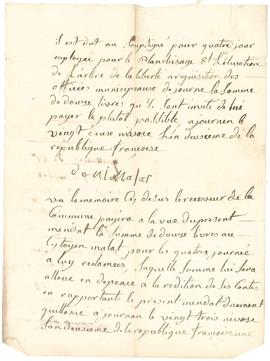 il est dut au Soussigné pour quatre jour
employai pour le Blanchisage et l'élévation
de l'arbre de la liberté a requisition des
officiés municipeaux de journe la Somme
de douse livres qu'ils sont invité de lui
payer le plutot possible a journan le
vingt deuse nivose l'an deuxieme de la
republique francoise
vu le memoire Cy desus le receveur de la
Commune payera a la vue du present
mandat la Somme de douse livres au
Citoyen malat pour les quatre journée
a luy reclamées, laquelle Somme lui sera
alloué en depence a la redition de ses Conte
en rapportant le present mandat duement
quittancé a journan le vingt trois nivose
l'an deuxieme de la republique francoise une